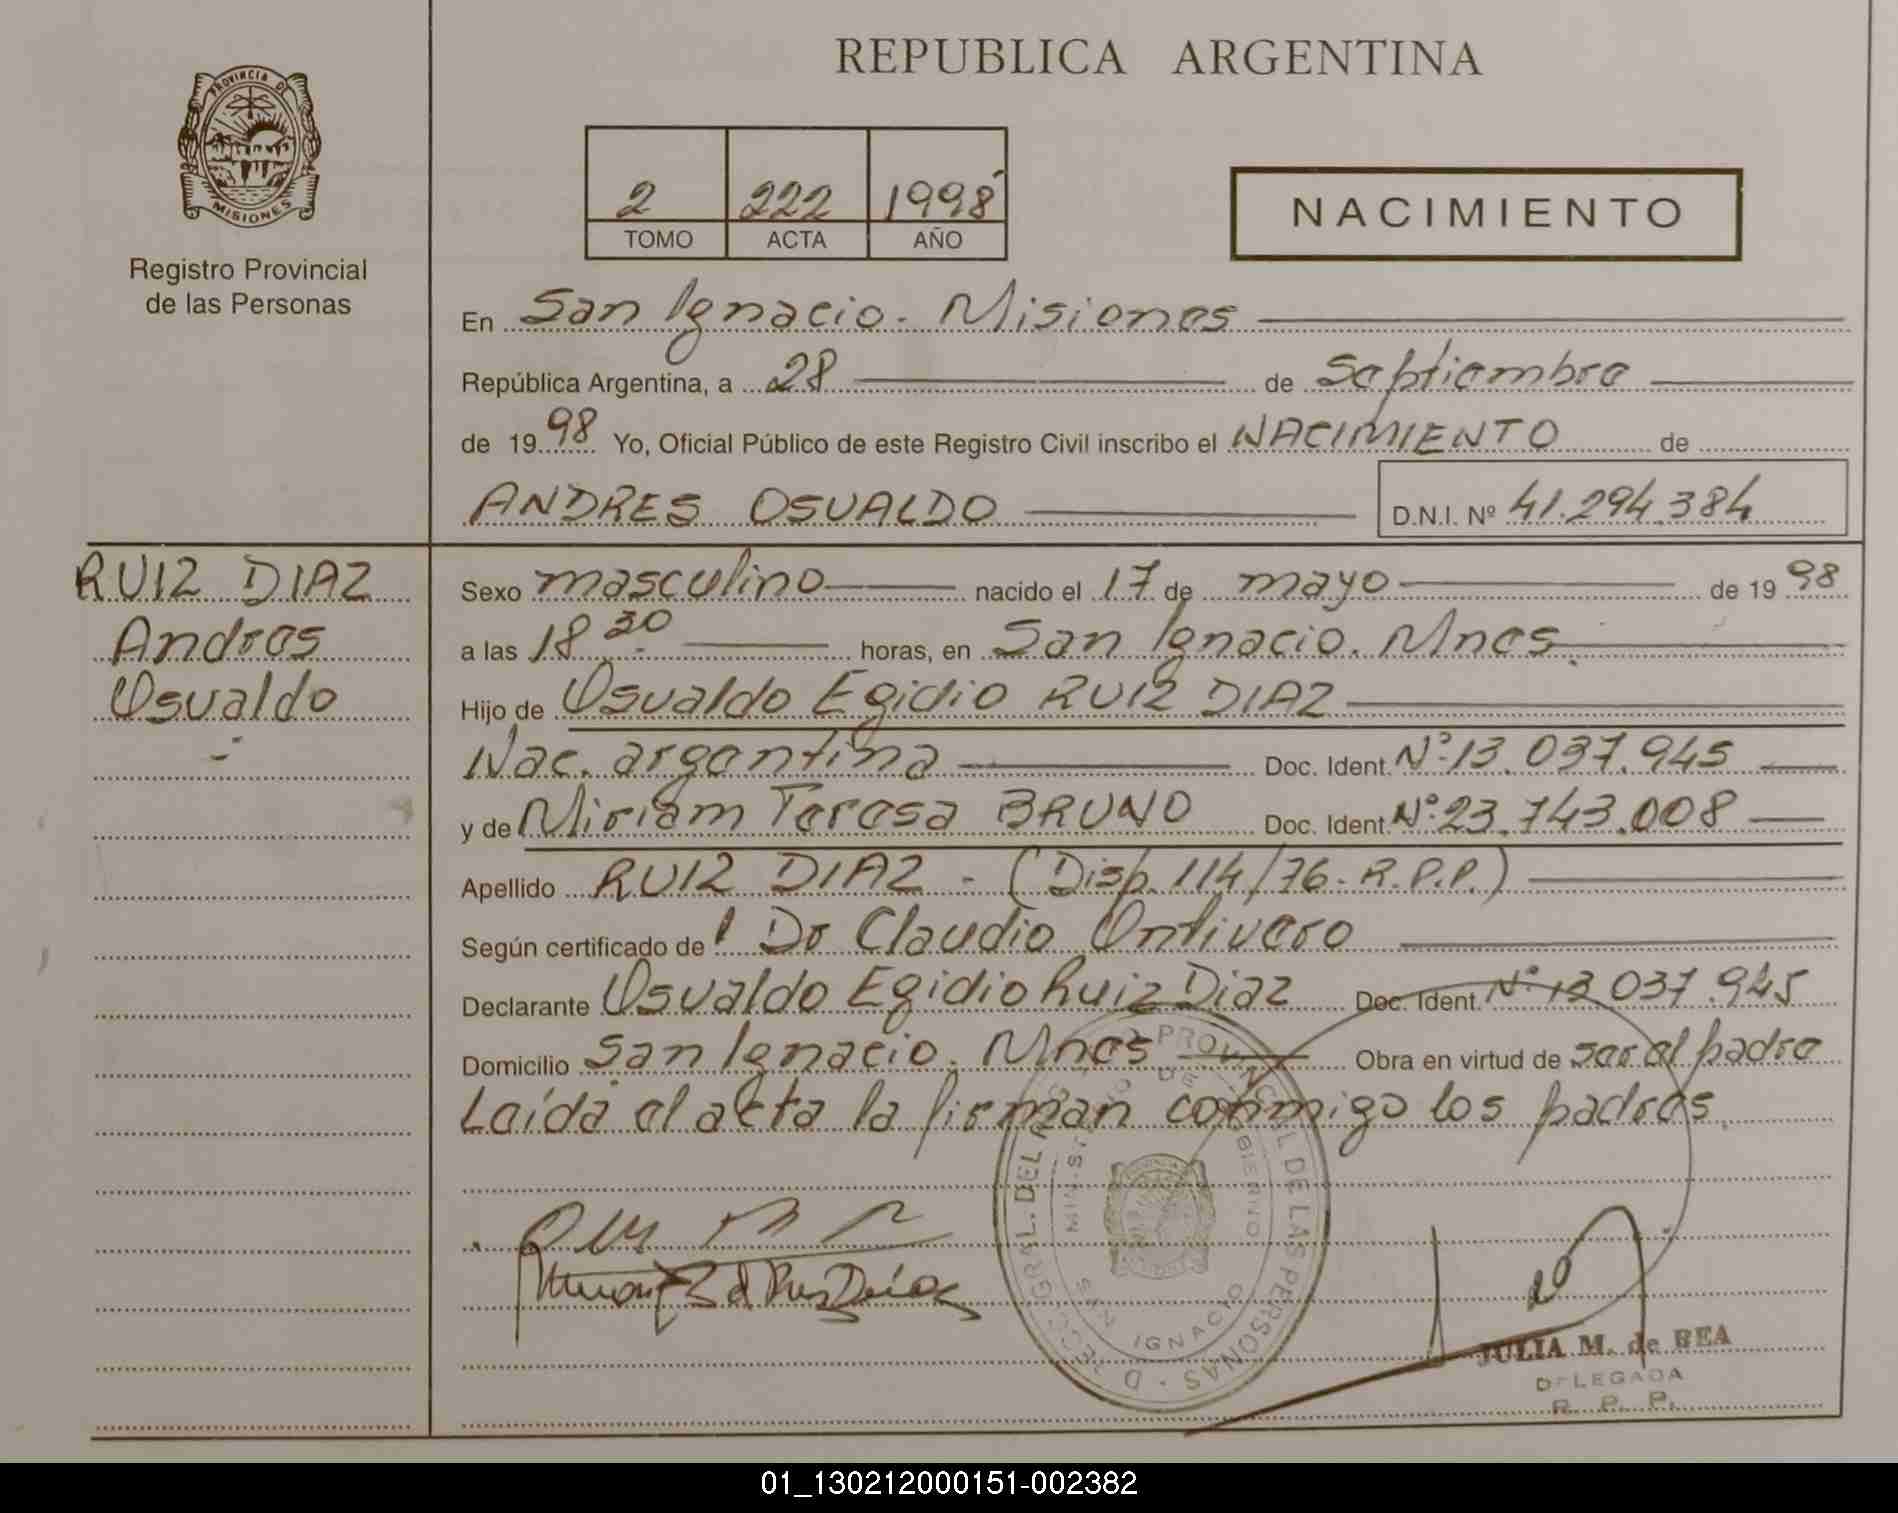 REPUBLICA ARGENTINA
PROVINCIA DE
MISIONES
Registro Provincial
de las Personas
2 222 1998
TOMO ACTA AÑO
NACIMIENTO
En San Ignacio - Misiones
República Argentina, a 28 de Septiembre
de 1998 Yo, Oficial Público de este Registro Civil inscribo el NACIMIENTO de
ANDRES OSUALDO D.N.I. Nº 41.294.384
RUIZ DIAZ
Andres
Osualdo
Sexo masculino nacido el 17 de mayo de 1998
a las 18 30 horas, en San Ignacio. Mnes.
Hijo de Osualdo Egidio RUIZ DIAZ
Nac. argentina Doc. Ident. Nº 13.037.945
y de Miriam Teresa BRUNO Doc. Ident. Nº 23.743.008
Apellido RUIZ DIAZ - (Disp. 114/76 - R.P.P.)
Según certificado de Dr Claudio Ontivero
Declarante Osualdo Egidio Ruiz Diaz Doc. Ident. Nº 13 037.945
Domicilio San Ignacio. Mnes Obra en virtud de ser el padre
Leída el acta la firman conmigo los padres.
PROVINCIAL DE LAS PERSONAS
SAN IGNACIO
JULIA M. de BEA
DELEGADA
R. P. P.
01_130212000151-002382